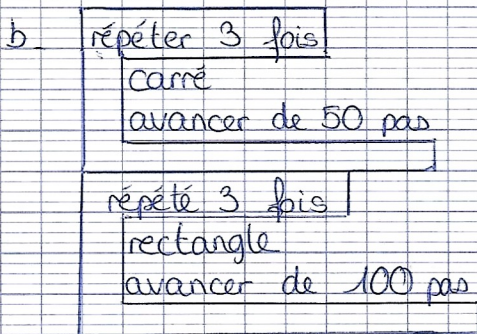 b répéter 3 fois
carré
avancer de 50 pas
répété 3 fois
rectangle
avancer de 100 pas